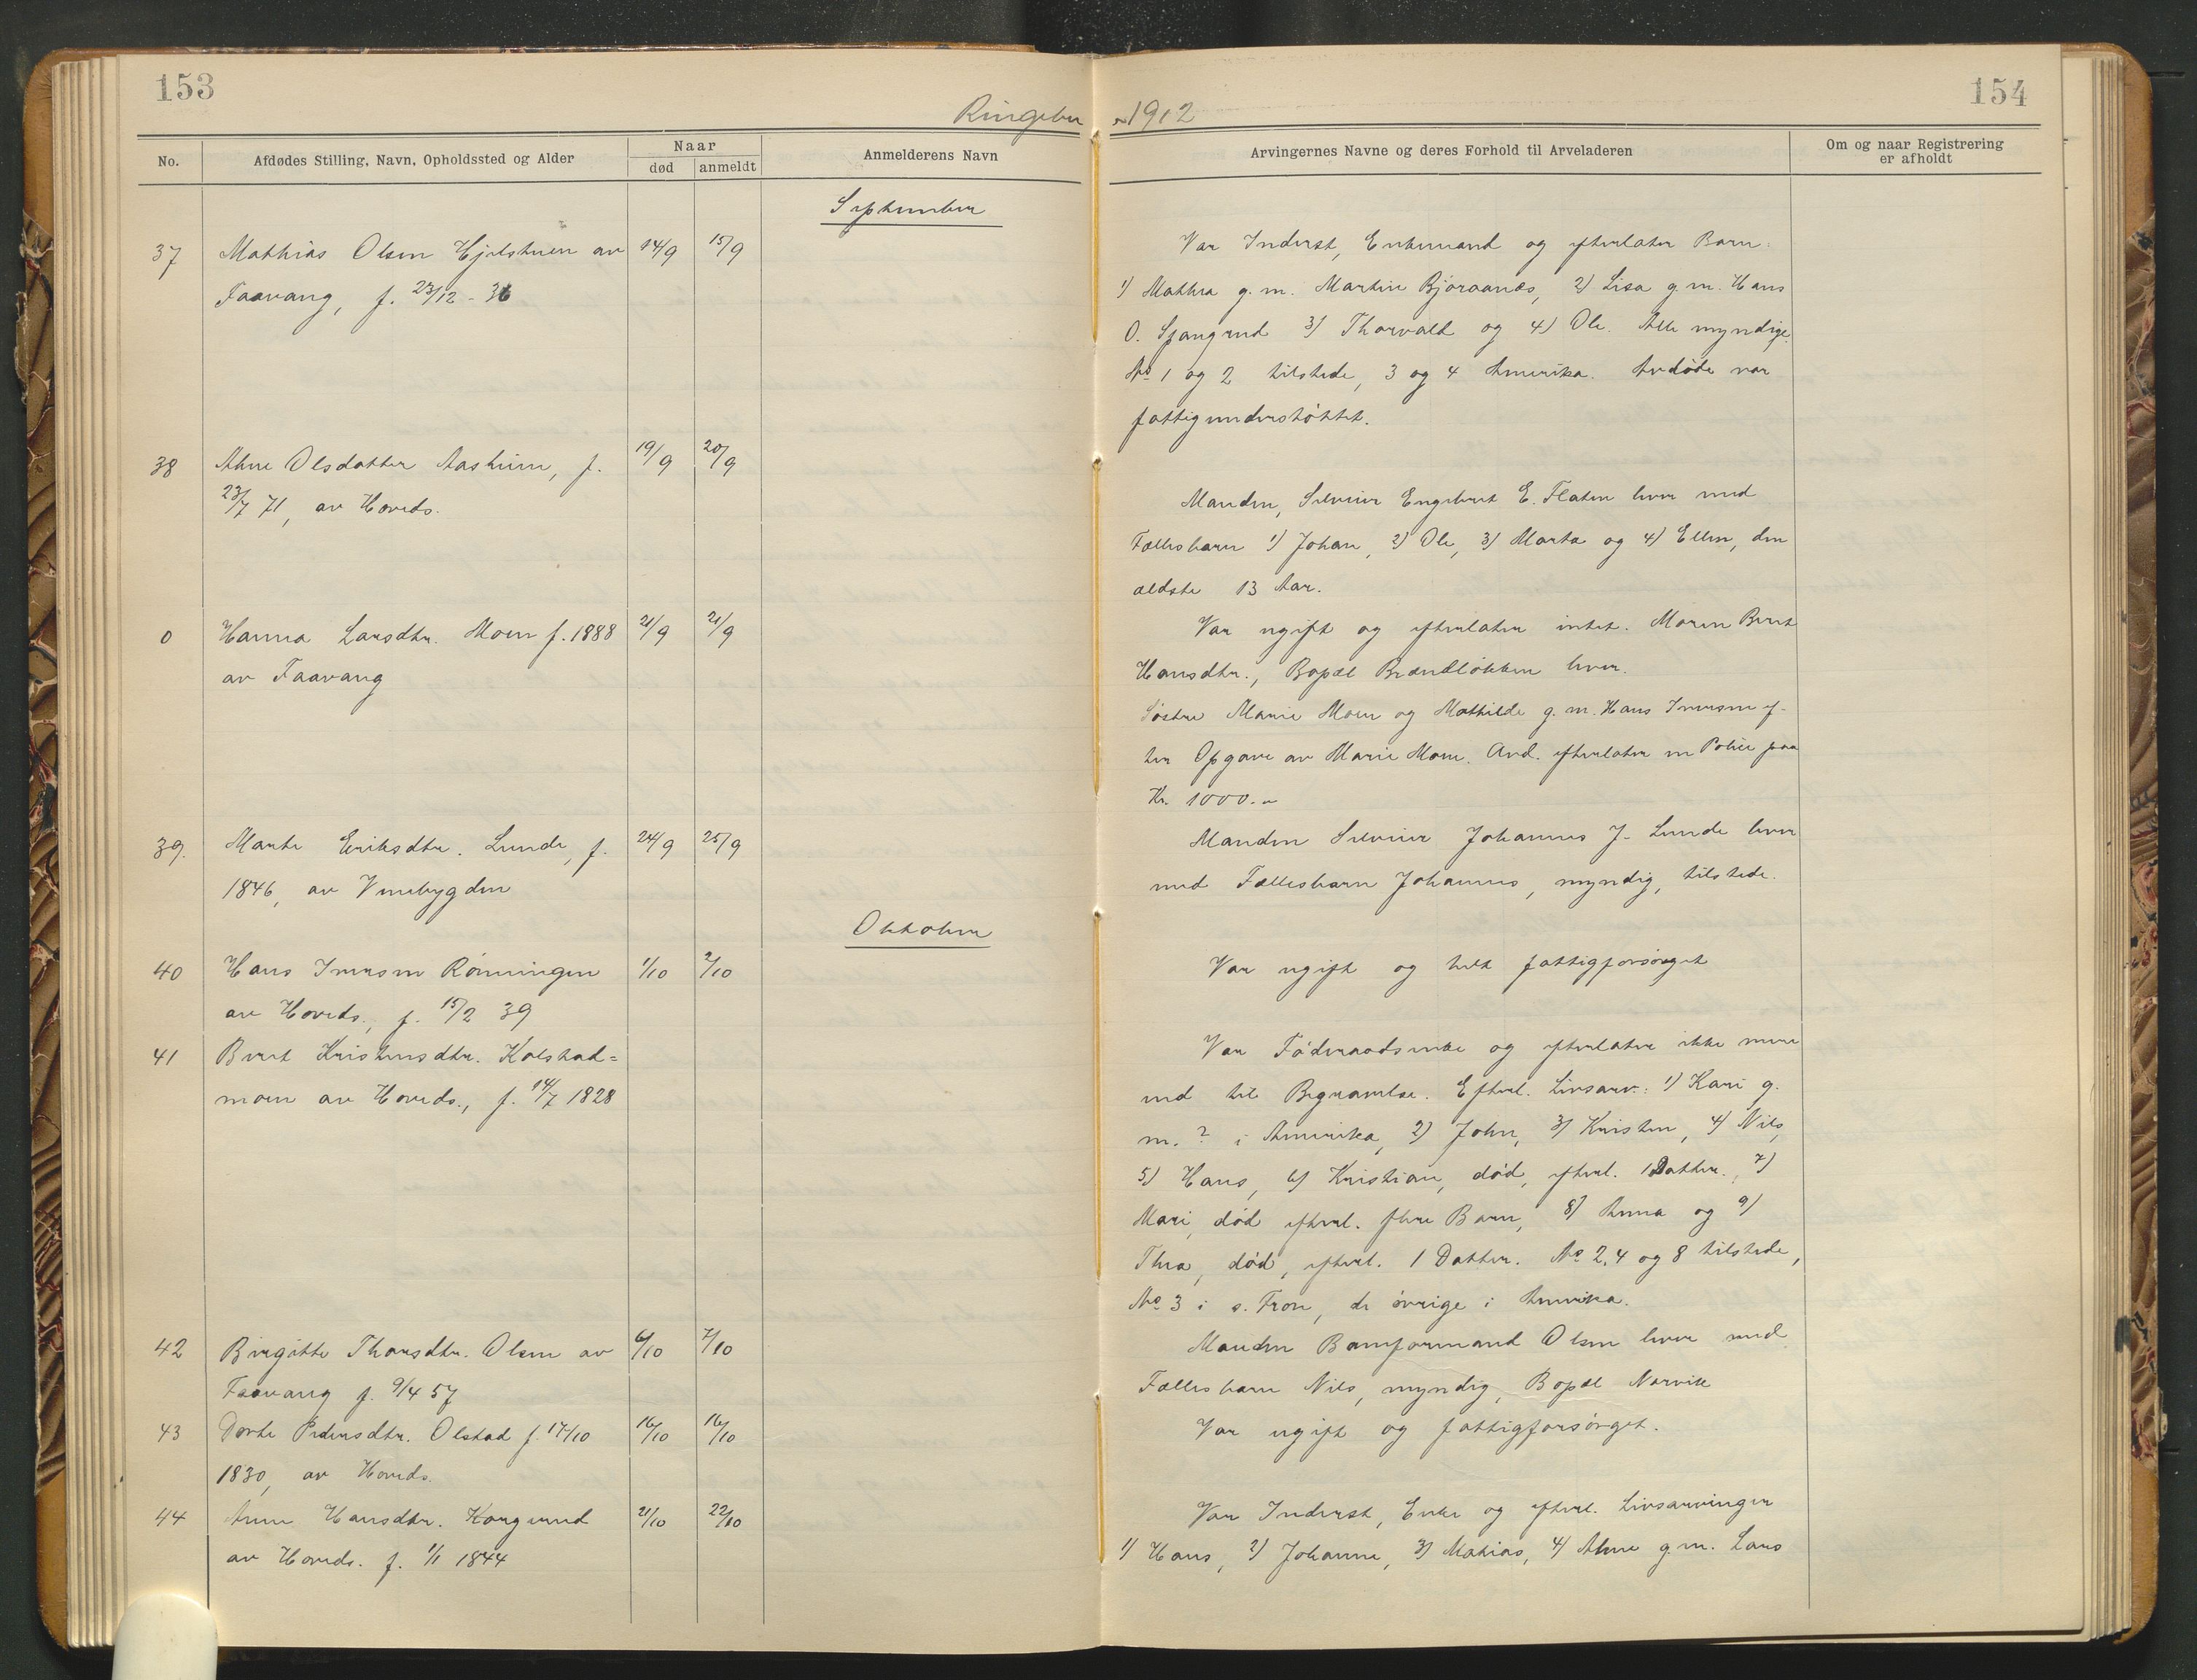 153
154
Ringebu 1912
No.
Afdødes Stilling, Navn, Opholdssted og Alder
Naar
død
anmeldt
Anmelderens Navn
Arvingernes Navne og deres Forhold til Arveladeren
Om og naar Registrering
er afholdt
September
37 Mathias Olsen Hjelstuen av 14/9 15/9
Faavang, f. 23/12 - 36
Var Inderst, Enkemand og efterlater Barn:
1) Mathea g. m. Martin Bjøraanæs, 2) Lisa g. m. Hans
O. Spangrud 3) Thorvald og 4) Ole. Alle myndige.
No 1 og 2 tilstede, 3 og 4 Amerika. Avdøde var
fattigunderstøttet.
38 Ahne Olsdatter Aasheim, f. 19/9 20/9
23/7 71, av Hoveds.
Manden, Selveier Engebret E. Flaten lever med
Fællesbarn 1) Johan, 2) Ole, 3) Marta og 4) Ellen, den
ældste 13 Aar.
0 Hanna Larsdtr. Moen f. 1888 21/9 21/9
av Faavang
Var ugift og efterlater intet. Moren Berit
Hansdtr., Bopæl Brændløkken lever.
Søstre Marie Moen og Mathilde g. m. Hans Iversen ef-
ter Opgave av Marie Moen. Avd. efterlater en Police paa
Kr. 1000.-
39. Marte Eriksdtr. Lunde, f. 24/9 25/9
1846, av Venebygden
Manden Selveier Johannes J. Lunde lever
med Fællesbarn Johannes, myndig, tilstede.
Oktober
40 Hans Iversen Rønningen 1/10 2/10
av Hoveds., f. 15/2 39
Var ugift og helt fattigforsørget
41 Berit Kristensdtr. Kolstad=
moen av Hoveds., f. 14/7 1828
Var Føderaadsenke og efterlater ikke mere
end til Begravelse. Efterl. Livsarv.: 1) Kari g.
m. ? i Amerika, 2) John, 3) Kristen, 4) Nils,
5) Hans, 6) Kristian, død, efterl. 1 Datter., 7)
Mari, død efterl. flere Barn, 8) Anna og 9)
Thea, død, efterl. 1 Datter. No 2, 4 og 8 tilstede,
No 3 i s. Fron, de øvrige i Amerika.
42 Birgitte Thorsdtr. Olsen av 6/10 7/10
Faavang f. 9/4 57
Manden Banformand Olsen lever med
Fællesbarn Nils, myndig, Bopæl Narvik
43 Dorte Pedersdtr. Olstad f. 17/10 16/10 16/10
1830, av Hoveds.
Var ugift og fattigforsørget.
44 Anne Hansdtr. Korgerud 21/10 22/10
av Hoveds. f. 1/1 1844
Var Inderst, Enke og efterl. Livsarvinger
1) Hans, 2) Johanne, 3) Mathias, 4) Ahne g. m. Lars